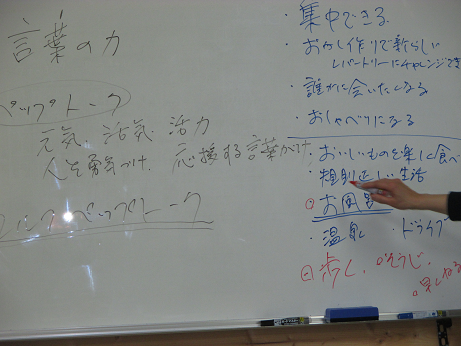 言葉の力
ペップトーク
元気、活気、活力
人を勇気づけ、応援する言葉がけ
セルフペップトーク
・集中できる
・おかし作りで新らしい
レパートリーにチャレンジでき
・誰かに会いたくなる
・おしゃべりになる
・おいしいものを楽しく食べ
・規則正しい生活
お風呂
・温泉 ・ドライブ
歩く、そうじ、
早くねる